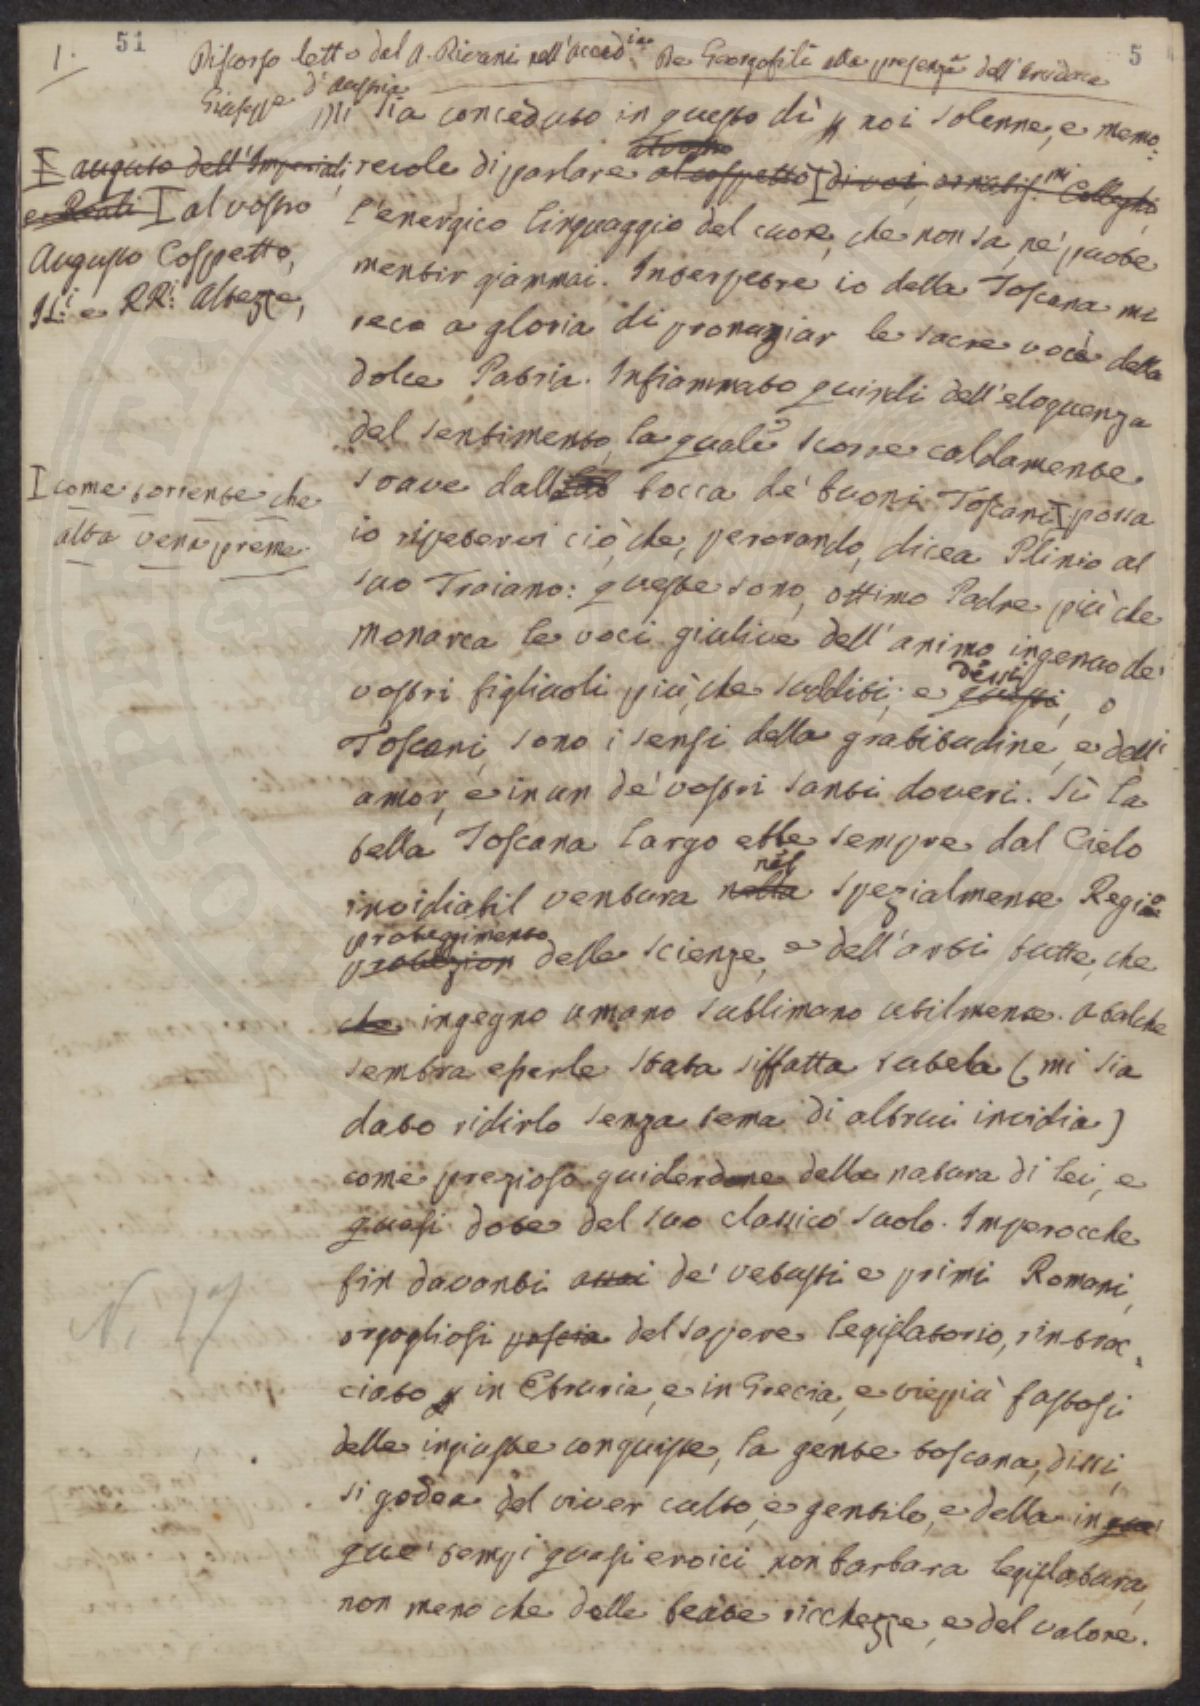 1.
51
5
Discorso letto dal A. Rivani nell'Accad.ia De Georgofili alla presenza dell'Arciduca
Giuseppe d'Austria
Mi sia conceduto in questo dì p noi solenne, e memo:
revole di parlare al vostro al cospetto di voi, ornatiss.mi Colleghi,
augusto dell'Imperiali, e Reali al vostro
Augusto Cospetto,
II.i e RR.i Altezze,
l'energico linguaggio del cuore, che non sa, nè puote
mentir giammai. Interpetre io della Toscana mi
reco a gloria di pronunziar le sacre voci della
dolce Patria. Infiammato quindi dell'eloquenza
del sentimento, la quale scorre caldamente
soave dalla bocca de' buoni Toscani possa
come torrente che
alta vena preme
io ripetervi ciò, che, perorando, dicea Plinio al
suo Traiano: queste sono, ottimo Padre più che
monarca le voci giulive dell'animo ingenuo de'
vostri figliuoli più, che sudditi; e dessi questi, o
Toscani, sono i sensi della gratitudine, e dell'
amor, e in un de' vostri santi doveri. Sù la
bella Toscana largo ebbe sempre dal Cielo
invidiabil ventura nel nella spezialmente Regio
proteggimento protezion delle scienze, e dell'arti tutte, che
che ingegno umano sublimano utilmente. Atalche
sembra esserle stata siffatta tutela (mi sia
dato ridirlo senza tema di altrui invidia)
come prezioso guiderdone della natura di lei, e
quasi dote del suo classico suolo. Imperocche
fin davanti assai de' vetusti e primi Romani,
orgogliosi poscia del sapere legislatorio, rintrac:
ciato p in Etruria, e in Grecia, e vieppiù fastosi
delle ingiuste conquiste, la gente toscana, dissi,
si godea del viver culto, e gentile, e della in que'
que' tempi quasi eroici non barbara legislatura,
non meno che delle beate ricchezze, e del valore.
N. 17